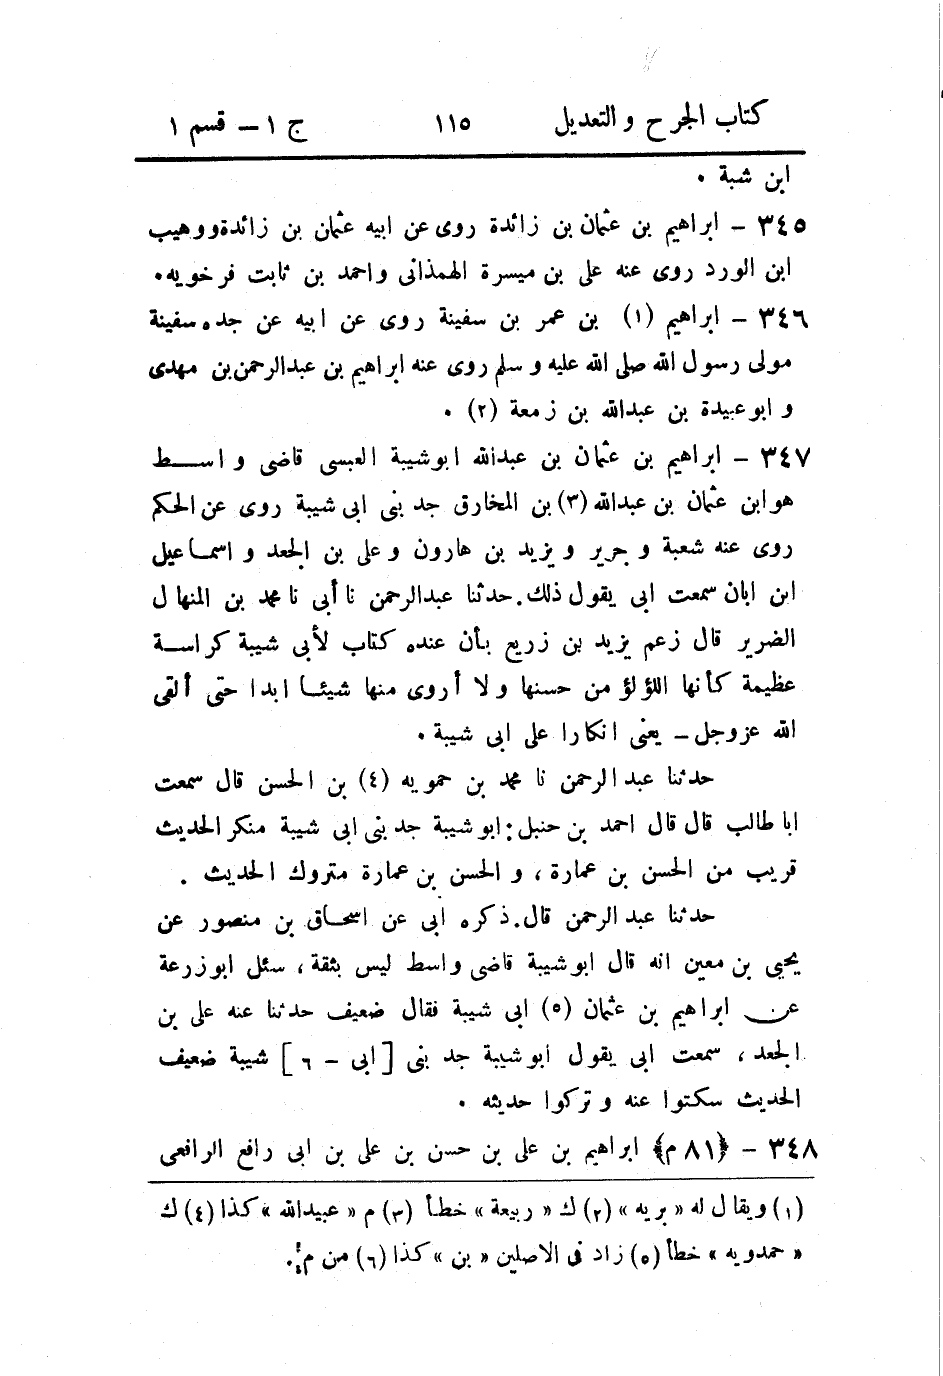 كتاب الجرح والتعديل ١١٥ ج ١ – قسم ١
ابن شبة ٠
٣٤٥ – ابراهيم بن عثمان بن زائدة روى عن ابيه عثمان بن زائدة ووهيب
ابن الورد روى عنه على بن ميسرة الهمذانى واحمد بن ثابت فرخويه٠
٣٤٦ – ابراهيم (١) بن عمر بن سفينة روى عن ابيه عن جده سفينة
مولى رسول الله صلى الله عليه وسلم روى عنه ابراهيم بن عبدالرحمن بن مهدى
و ابوعبيدة بن عبدالله بن زمعة (٢) ٠
٣٤٧ – ابراهيم بن عثمان بن عبدالله ابوشيبة العبسى قاضى واسـط
هوابن عثمان بن عبدالله (٣) بن المخارق جد بنى ابى شيبة روى عن الحكم
روى عنه شعبة و جرير و يزيد بن هارون وعلى بن الجعد و اسماعيل
ابن ابان سمعت ابى يقول ذلك. حدثنا عبدالرحمن نا أبى نا محمد بن المنهال
الضرير قال زعم يزيد بن زريع بأن عنده كتاب لأبى شيبة كراسة
عظيمة كأنها اللؤلؤ من حسنها ولا أروى منها شيئا ابدا حتى ألقى
الله عزوجل – يعنى انكارا على ابى شيبة ٠
حدثنا عبد الرحمن نا محمد بن حمويه (٤) بن الحسن قال سمعت
اباطالب قال قال احمد بن حنبل: ابوشيبة جد بنى ابى شيبة منكر الحديث
قريب من الحسن بن عمارة، والحسن بن عمارة متروك الحديث .
حدثنا عبد الرحمن قال. ذكره ابى عن اسحاق بن منصور عن
يحيى بن معين انه قال ابوشيبة قاضى واسط ليس بثقة، سئل ابوزرعة
عن ابراهيم بن عثمان (٥) ابى شيبة فقال ضعيف حدثنا عنه على بن
الجعد، سمعت ابى يقول ابوشيبة جد بنى [ابى – ٦] شيبة ضعيف
الحديث سكتوا عنه وتركوا حديثه ٠
٣٤٨ – ﴿٨١ م﴾ ابراهيم بن على بن حسن بن على بن ابى رافع الرافعى
(١) ويقال له « بريه » (٢) ك « ربيعة » خطأ (٣) م « عبيدالله » كذا (٤) ك
« حمدويه » خطأ (٥) زاد فى الاصلين « بن » كذا (٦) من م.